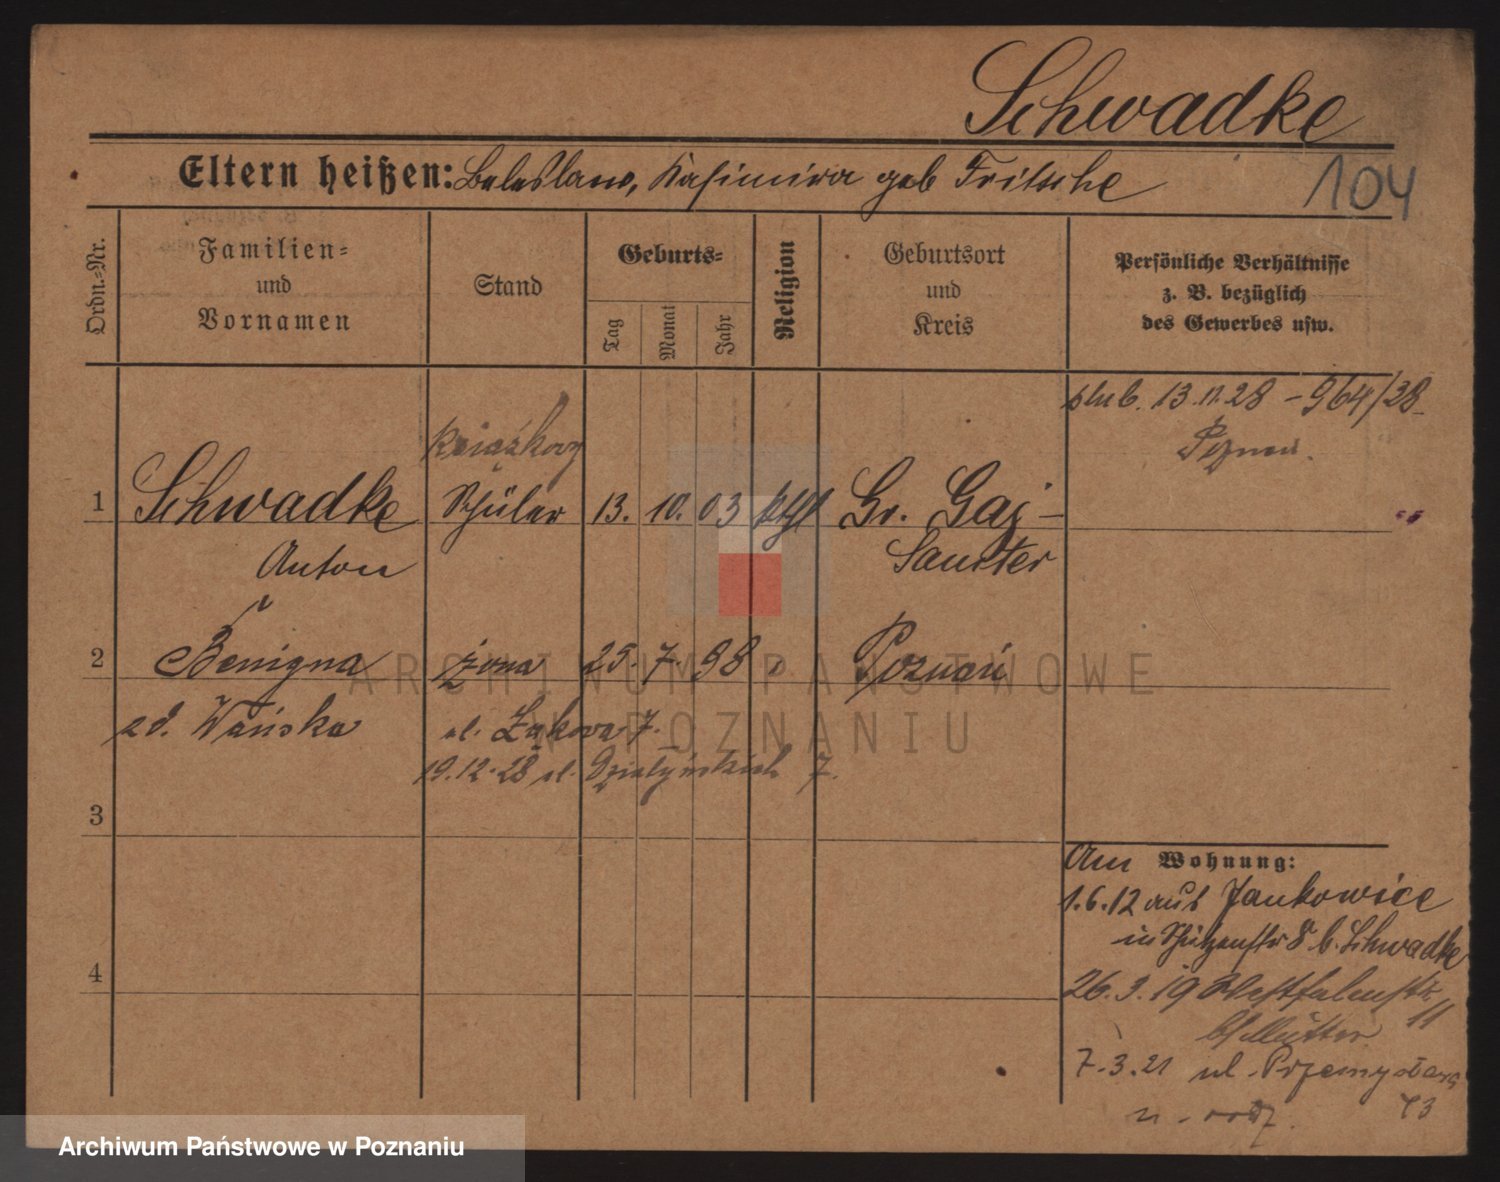 Schwadke
Eltern heißen: Boleslaw, Kasimira geb Fritsche
104
Ordn.-Nr.
Familien-
und
Vornamen
Stand
Geburts-
Tag
Monat
Jahr
Religion
Geburtsort
und
Kreis
Persönliche Verhältnisse
z. B. bezüglich
des Gewerbes usw.
ślub. 13.11.28 - 964/28
Poznań.
książkowy
1 Schwadke Schüler 13. 10. 03 kth Gr. Gaj -
Anton Samter
2 Benigna żona 25. 7. 98 " Poznań
zd. Wańska ul. Łąkowa 7.
19.12.28 ul. Działyńskich 7.
3
4
Am Wohnung:
1.6.12 aus Jankowice
in Schützenstr 8 b. Schwadke
26.3.19 Westfalenstr.
11
b/ Mutter
7.3.21 ul. Przemysłowa
73
u. rodz.
ARCHIWUM PAŃSTWOWE
W POZNANIU
Archiwum Państwowe w Poznaniu